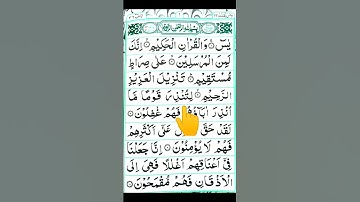 بِسْمِ اللّٰهِ الرَّحْمٰنِ الرَّحِيْمِ
يٰسٓ ۚ وَالْقُرْاٰنِ الْحَكِيْمِ ۙ اِنَّكَ
لَمِنَ الْمُرْسَلِيْنَ ۙ عَلٰى صِرَاطٍ
مُّسْتَقِيْمٍ ؕ تَنْزِيْلَ الْعَزِيْزِ
الرَّحِيْمِ ۙ لِتُنْذِرَ قَوْمًا مَّاۤ
اُنْذِرَ اٰبَآؤُهُمْ فَهُمْ غٰفِلُوْنَ
لَقَدْ حَقَّ عَلٰۤى اَكْثَرِهِمْ
فَهُمْ لَا يُؤْمِنُوْنَ ۙ اِنَّا جَعَلْنَا
فِيْۤ اَعْنَاقِهِمْ اَغْلٰلًا فَهِيَ اِلَى
الْاَذْقَانِ فَهُمْ مُّقْمَحُوْنَ